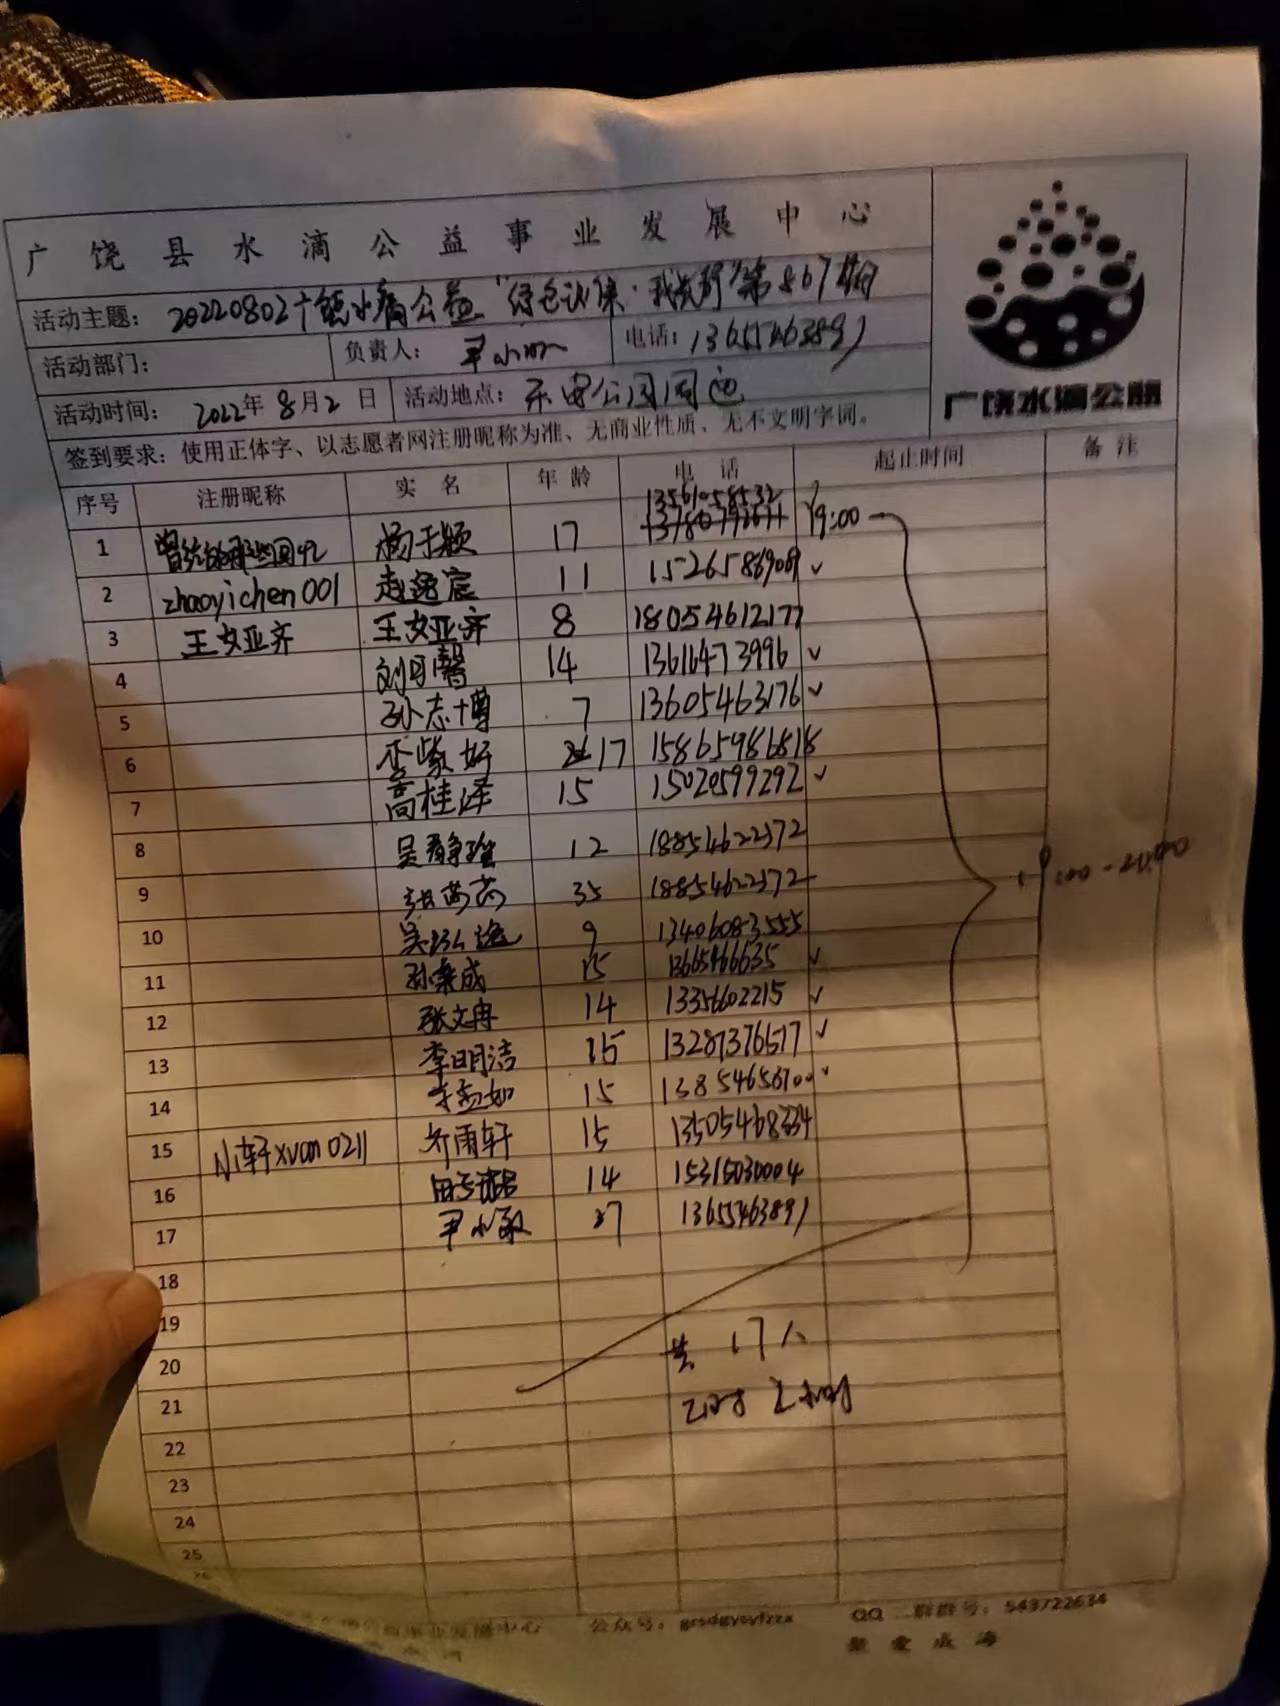 广饶县水滴公益事业发展中心
活动主题： 20220802广饶水滴公益"绿色环保·我先行"第867期
活动部门： 负责人： 尹小 电话：13655463891
活动时间： 2022年8月2日 活动地点： 乐安公园周边
广饶水滴公益
签到要求：使用正体字、以志愿者网注册昵称为准、无商业性质、无不文明字词。
序号 注册昵称 实名 年龄 电话 起止时间 备注
13561058532
1 17 19:00
2 zhaoyichen001 赵逸宸 11 15265886909 ✓
3 王文亚齐 王文亚齐 8 18054612177
4 刘明馨 14 13616473996 ✓
5 孙志博 7 13605463176 ✓
6 李紫妤 17 15865986818
7 高桂泽 15 15020599292 ✓
8 吴静 12 18854622372
19:00-21:00
9 35 18854622372
10 吴 9 13406083555
11 孙 成 15 ✓
12 张文冉 14 13356602215 ✓
13 李明洁 15 13287376517 ✓
14 李孟如 15 ✓
15 轩xuan0211 齐雨轩 15 13505468334
16 14 15315030004
17 尹小 37 13655463891
18
19
20 共17人
21 2小时
22
23
24
25
26
公众号： QQ 群群号：543722634
聚爱成海